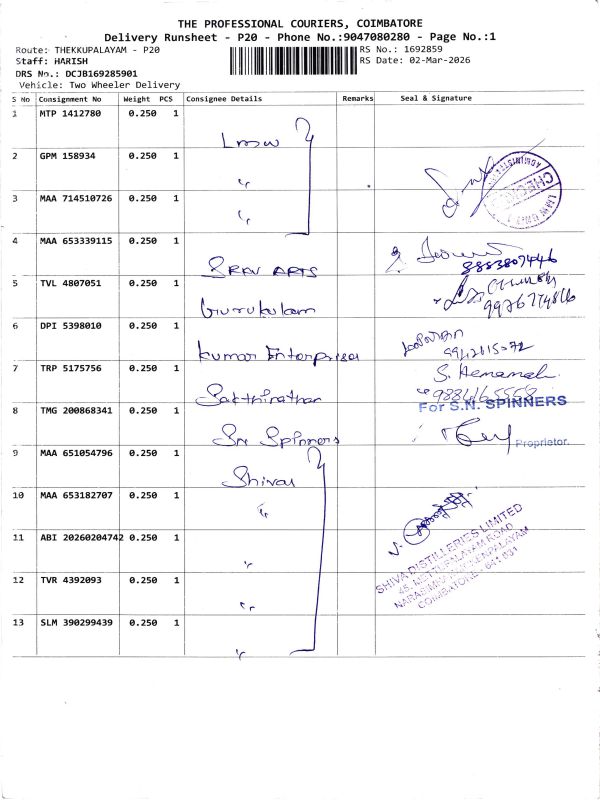 THE PROFESSIONAL COURIERS, COIMBATORE
Delivery Runsheet - P20 - Phone No.:9047080280 - Page No.:1
Route: THEKKUPALAYAM - P20
RS No.: 1692859
Staff: HARISH
RS Date: 02-Mar-2026
DRS No.: DCJB169285901
Vehicle: Two Wheeler Delivery
S No Consignment No Weight PCS Consignee Details Remarks Seal & Signature
1 MTP 1412780 0.250 1
Lmw
2 GPM 158934 0.250 1
"
3 MAA 714510726 0.250 1
"
4 MAA 653339115 0.250 1
SRAV ARTS
8883807446
5 TVL 4807051 0.250 1
Gurukulam
6 DPI 5398010 0.250 1
Kumar Enterprises
7 TRP 5175756 0.250 1
S. Hemamal
Sakthirathan
8 TMG 200868341 0.250 1
For S.N. SPINNERS
Sri Spinners
Proprietor.
9 MAA 651054796 0.250 1
Shivas
10 MAA 653182707 0.250 1
"
11 ABI 20260204742 0.250 1
"
SHIVA DISTILLERIES LIMITED
12 TVR 4392093 0.250 1
"
COIMBATORE - 641 031
13 SLM 390299439 0.250 1
"